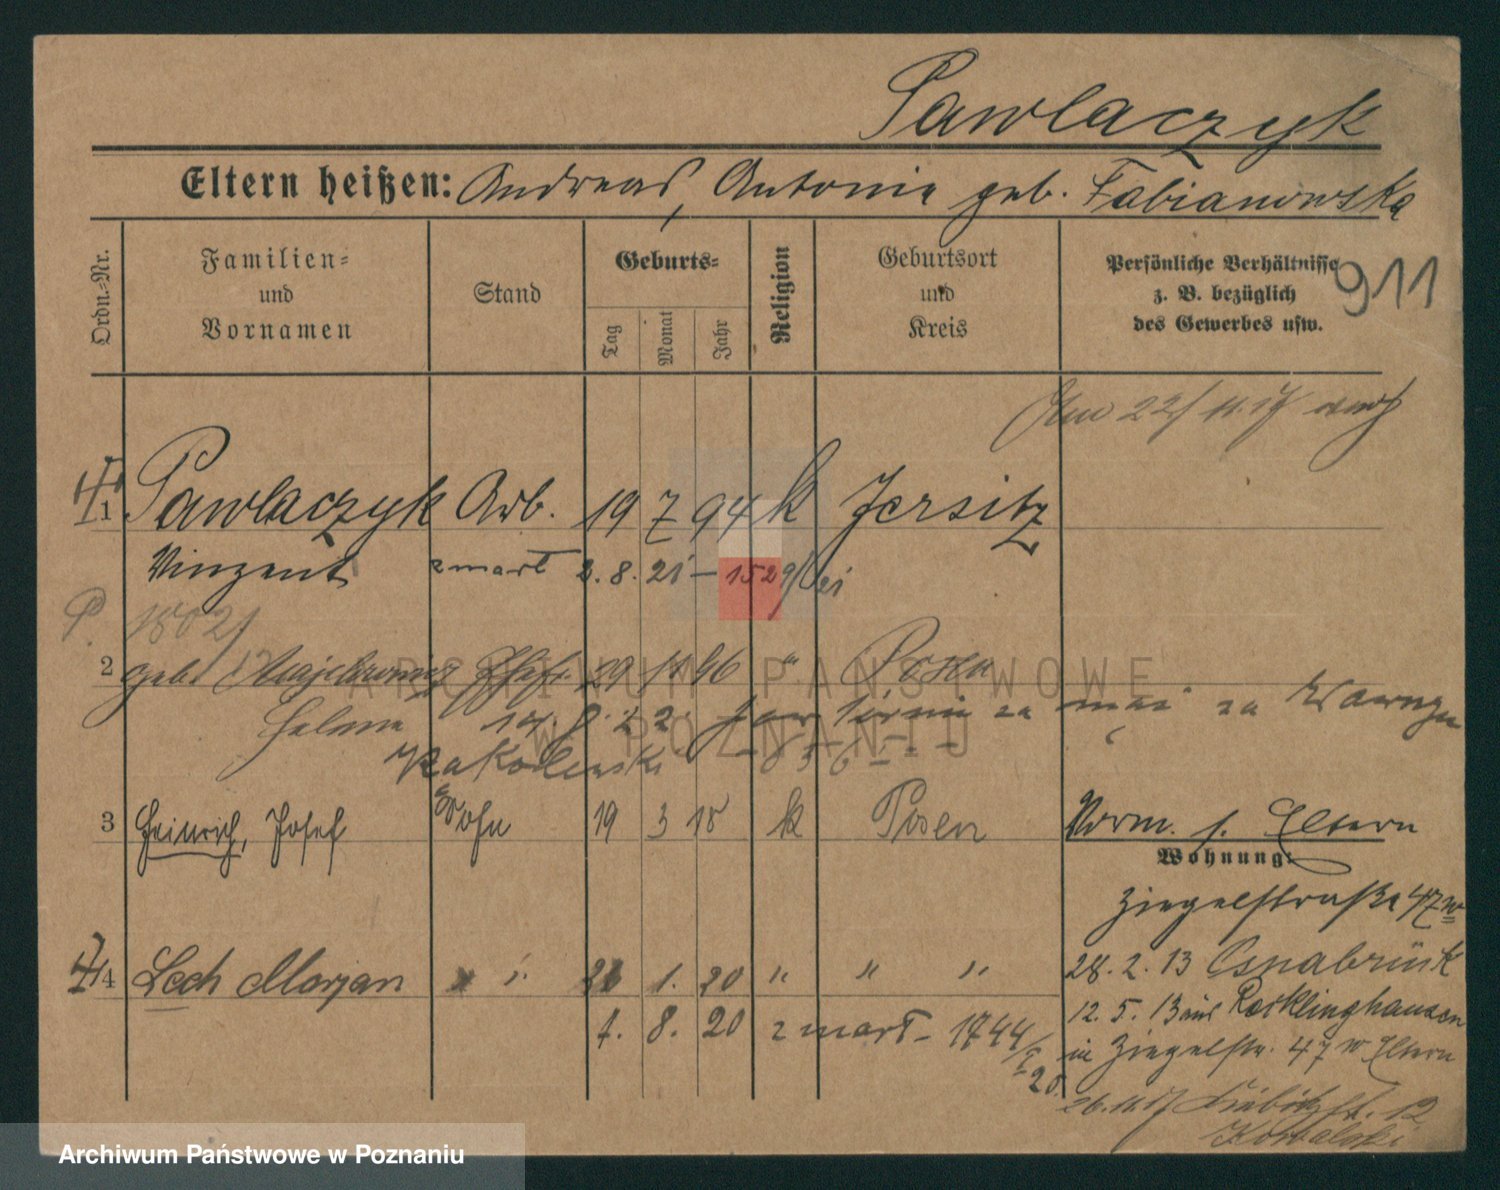 Pawlaczyk
Eltern heißen: Andreas, Antonie geb. Fabianowska
Ordn.-Nr.
Familien- und Vornamen
Stand
Geburts-
Tag
Monat
Jahr
Religion
Geburtsort und Kreis
Persönliche Verhältnisse z. B. bezüglich des Gewerbes usw.
911
22/11.17
1 Pawlaczyk Arb. 19 7 94 k Jersitz
Vinzent zmarł 2.8.21 – 1529
P. 1502
2 geb. 29 96 " Posen
Helena 14. 8. 22 za
3 Heinrich, Josef Sohn 19 3 18 k Posen
Vorm. s. Eltern
Wohnung:
Ziegelstraße 47 w
4 Lech Marjan 1. 20 " " "
28. 2. 13 Osnabrück
1. 8. 20 zmarł – 1744
20.
12. 5. 13 aus Recklinghausen
in Ziegelstr. 47 w Eltern
26.11.17 12
Kowalski
ARCHIWUM PAŃSTWOWE
W POZNANIU
Archiwum Państwowe w Poznaniu